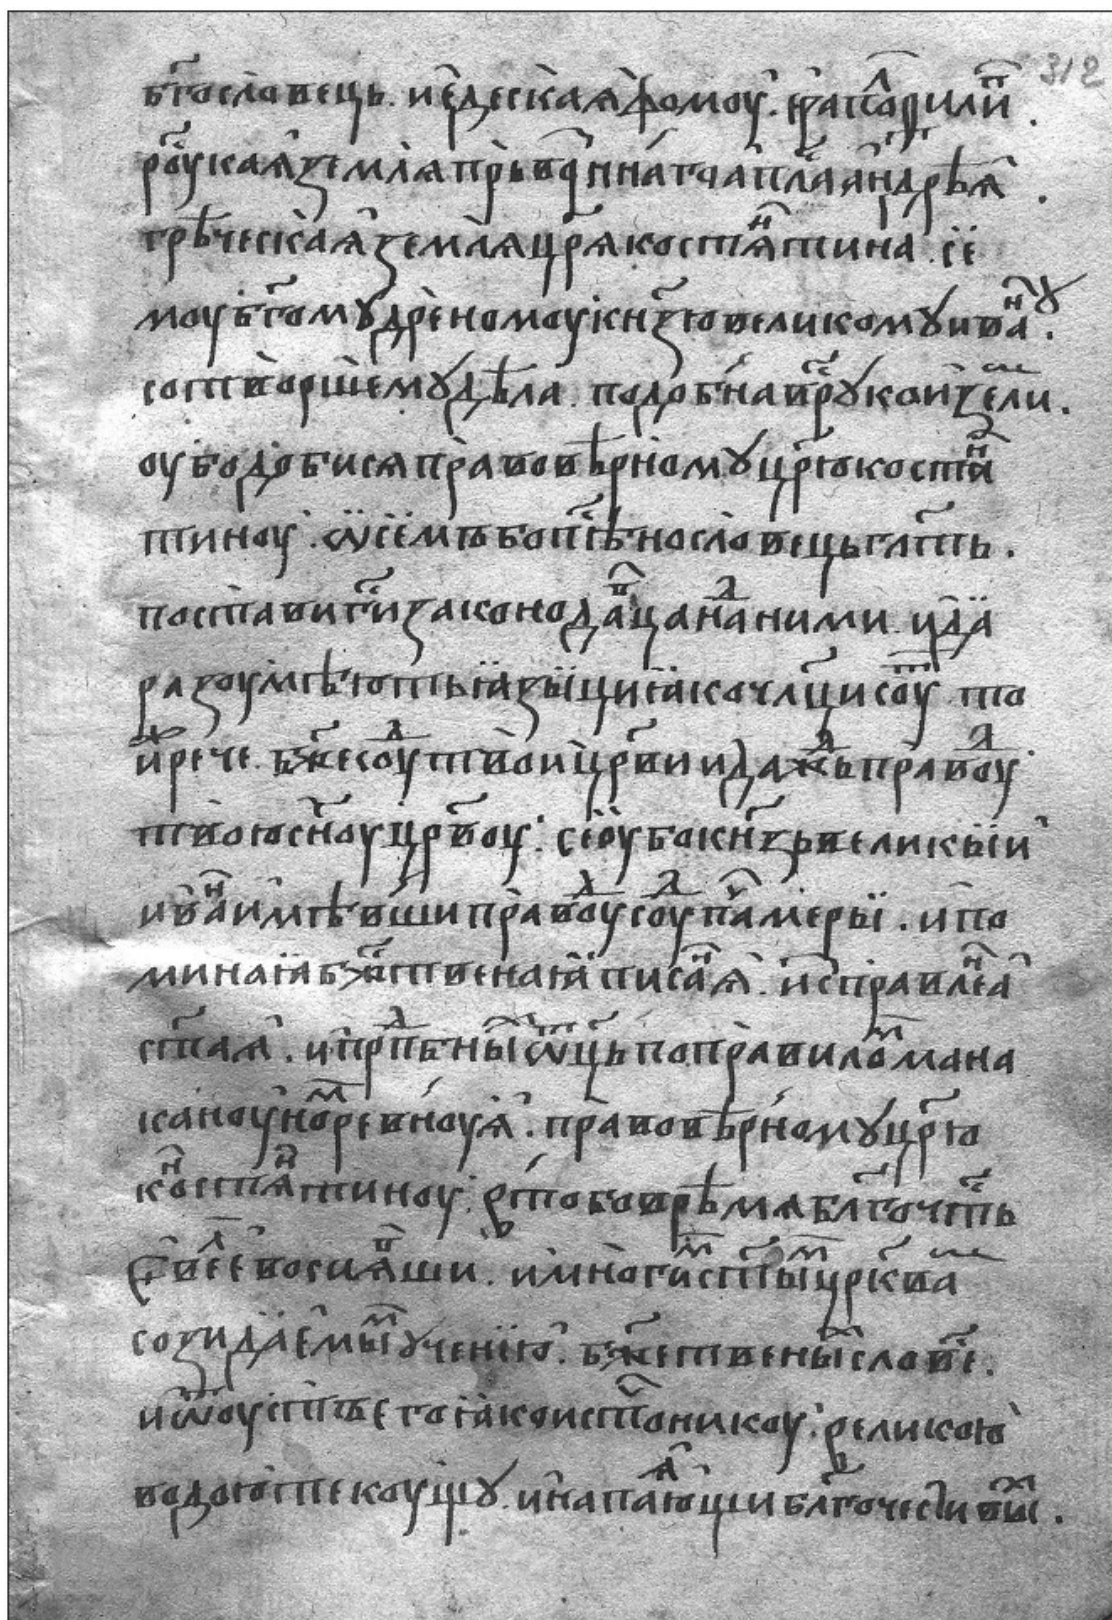 312
бг҃ословець. и едескаꙗ фомоу. ера поⷧ҇ филиⷫ҇.
роу҃скаꙗ землѧ прьвозв҃аннаг҃ апⷭ҇ла андрѣѧ.
грѣческаꙗ землѧ цр҃ѧ костѧⷩ҇тина. се
моу бг҃омꙋдреномоу кнѧ҃зю великомꙋ иваⷩ҇ꙋ.
сотворшемꙋ дѣла. подобна въ рꙋской земли.
оуподобисѧ правовѣрномꙋ цр҃ю костѧⷩ҇
тиноу. ѡ семъ бо пѣсносло вець гл҃ть.
постави г҃и законодаⷡ҇ца наⷣ ними. и да
разоумѣють ꙗзыци ꙗко чл҃ци соуⷮ. то
иⷤ рече. бж҃е соуⷣ твои цр҃ви и дажⷣь правⷣоу
твою сн҃оу цр҃воу. сеи оубо кнѧ҃зь великыи
иваⷩ҇ имѣвши правⷣоу соуⷣ паⷱ҇ мѣры. и по
минаꙗ бж҃ственаꙗ писаⷩ҇ѧ. исправлеⷩ҇а
ст҃аꙗ. и прпⷣбныⷯ ѿц҃ь по правилоⷨ мана
каноуноⷨ ревноуꙗ. правовѣрномꙋ цр҃ю
коⷩ҇стѧⷩ҇тиноу. въ то бо времѧ бл҃гочтⷭ҇ь
ѡ҃ весел восиѧⷡ҇ши. и многиⷨ ст҃ыⷨ цр҃ква
созидаемыⷨ ꙋченїю. бж҃ественыⷯ словеⷭ҇.
и ѿ оустъ его ꙗко источⷱ҇никоу. великою
водою текоущꙋ. и напаⷽ҇ющи бл҃гочестивыⷯ.